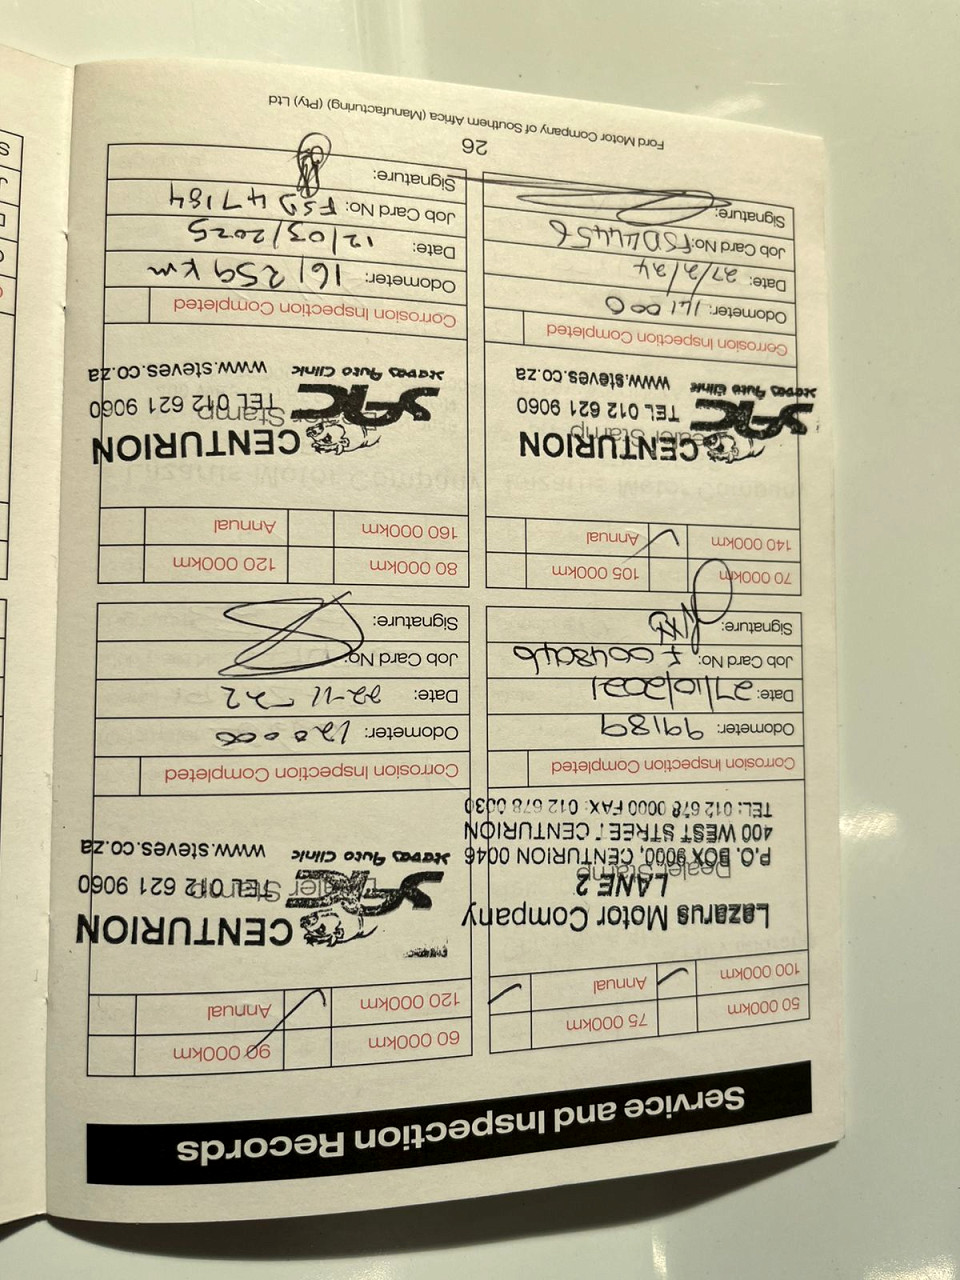 Service and Inspection Records
50 000km 75 000km
100 000km Annual
Lazarus Motor Company
LANE 2
Dealer Stamp
P.O. BOX 9000, CENTURION 0046
400 WEST STREET CENTURION
TEL: 012 678 0000 FAX: 012 678 0030
Corrosion Inspection Completed
Odometer: 99189
Date: 27/10/2021
Job Card No:
Signature:
60 000km 90 000km
120 000km Annual
CENTURION
Dealer Stamp
TEL 012 621 9060
Steves Auto Clinic
www.steves.co.za
Corrosion Inspection Completed
Odometer: 120000
Date: 22-11-22
Job Card No:
Signature:
70 000km 105 000km
140 000km Annual
CENTURION
Dealer Stamp
TEL 012 621 9060
Steves Auto Clinic
www.steves.co.za
Corrosion Inspection Completed
Odometer: 141 000
Date: 27/2/24
Job Card No: FSD44456
Signature:
80 000km 120 000km
160 000km Annual
CENTURION
Dealer Stamp
TEL 012 621 9060
Steves Auto Clinic
www.steves.co.za
Corrosion Inspection Completed
Odometer: 161 259 km
Date: 12/03/2025
Job Card No: FSD 47184
Signature:
26
Ford Motor Company of Southern Africa (Manufacturing) (Pty) Ltd